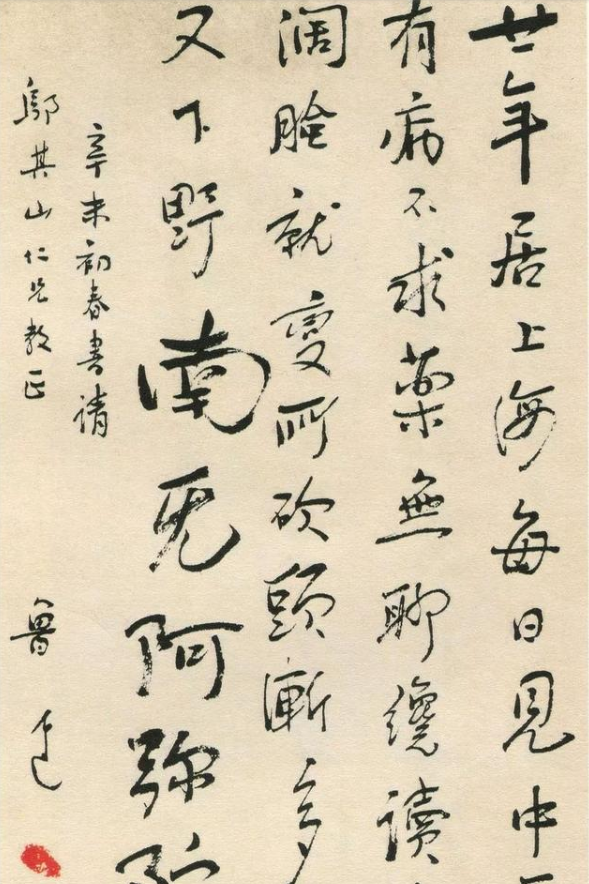 廿年居上海每日見中
有病不求藥無聊纔讀
濶臉就變所砍頭漸多
又下野南无阿弥
辛未初春書請
鄔其山仁兄教正
魯迅